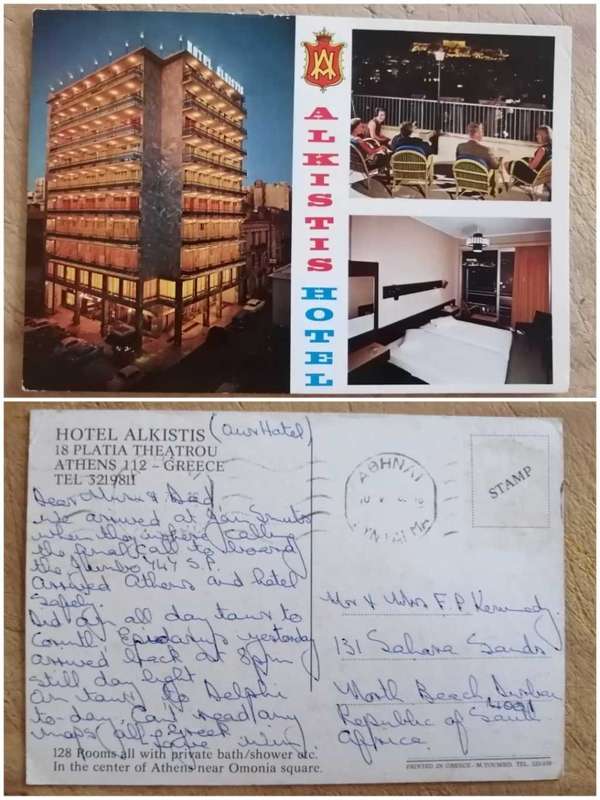 HOTEL ALKISTIS
ALKISTIS HOTEL
HOTEL ALKISTIS (Our Hotel)
18 PLATIA THEATROU
ATHENS 112 - GREECE
TEL 3219811
Dear Mum & Dad
We arrived at Jan Smuts
when they where calling
the final call to board
the Jumbo 747 S.P.
arrived Athens and hotel
Safely.
Did an all day tour to
Corinth, Epidarus yesterday
arrived back at 8pm
still day light.
On tour to Delphi
to-day. Can't read any
maps (all Greek
Love Win
128 Rooms all with private bath/shower etc.
In the center of Athens near Omonia square.
ΑΘΗΝΑΙ
STAMP
Mr & Mrs F.P. Kennedy.
131 Sahara Sands
North Beach, Durban
4001
Republic of South
Africa.
PRINTED IN GREECE - M. TOUMBO. TEL.